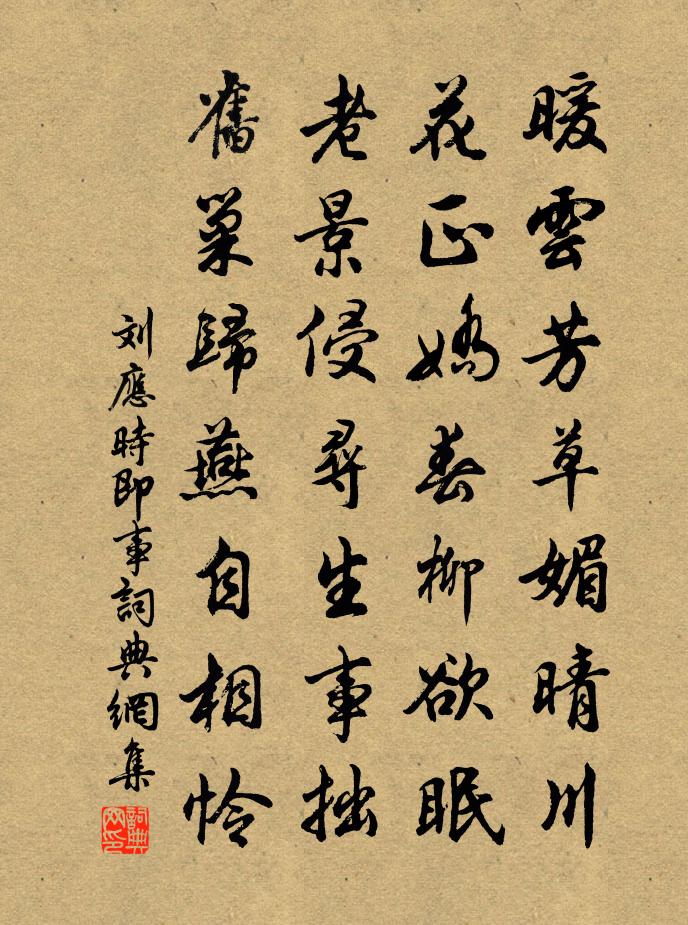 暖雲芳草媚晴川
花正嬌春柳欲眠
老景侵尋生事拙
舊巢歸燕自相憐
刘應時即事詞典網集
詞典网印